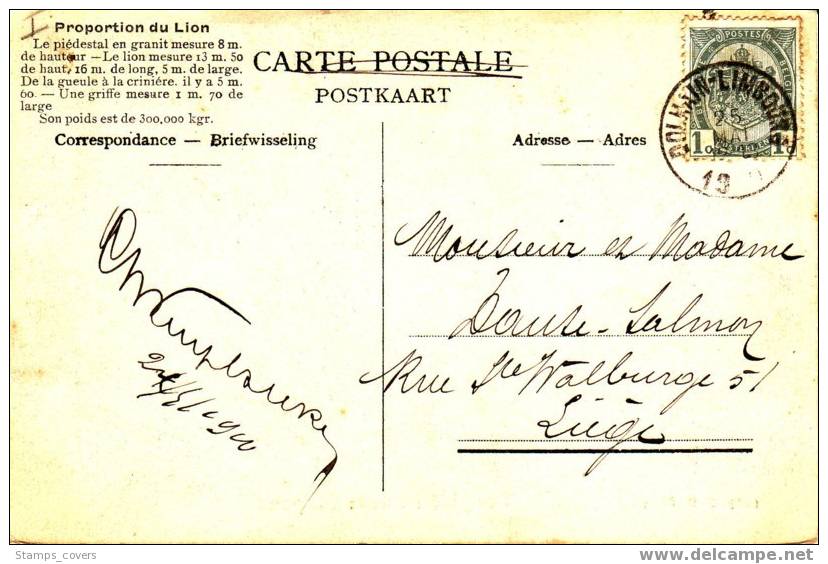 Proportion du Lion
Le piédestal en granit mesure 8 m.
de hauteur — Le lion mesure 13 m. 50
de haut, 16 m. de long, 5 m. de large.
De la gueule à la crinière. il y a 5 m.
60. — Une griffe mesure 1 m. 70 de
large
Son poids est de 300,000 kgr.
CARTE POSTALE
POSTKAART
Correspondance — Briefwisseling
Adresse — Adres
POSTES
DOLHAIN-LIMBOURG
25
MAI
19
Monsieur et Madame
Dause-Salmon
Rue Ste Walburge 51
Liège
Stamps_covers
www.delcampe.net